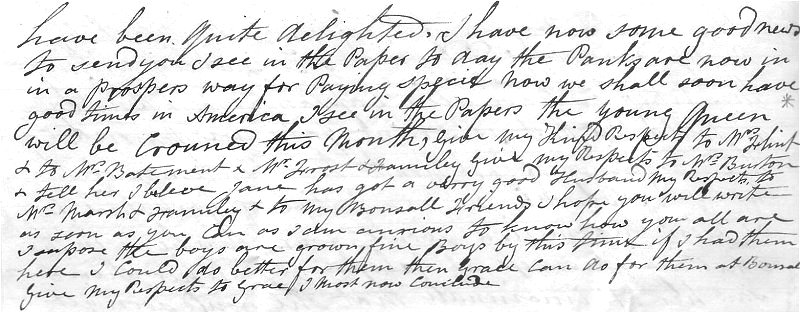 have been quite delighted. I have now some good news
to send you I see in the Paper to day the Banks are now in
in a prospers way for Paying specie now we shall soon have
good times in America, I see in the Papers the young Queen *
will be Crouned this Month, Give my Kind Respects to Mr Flint
& to Mr Batement & Mr Frost & Framiley Give my Respects to Mrs Burton
& tell her I beleve Jane has got a verry good Husband My Respects to
Mr Marsh & Framiley & to my Bonsall Friends I hope you will write
as soon as you Can as I am anxious to know how you all are
I supose the boys are grown fine Boys by this time if I had them
here I Could do better for them then Grace Can do for them at Bonsal
Give my Respects to Grace I most now Conclude